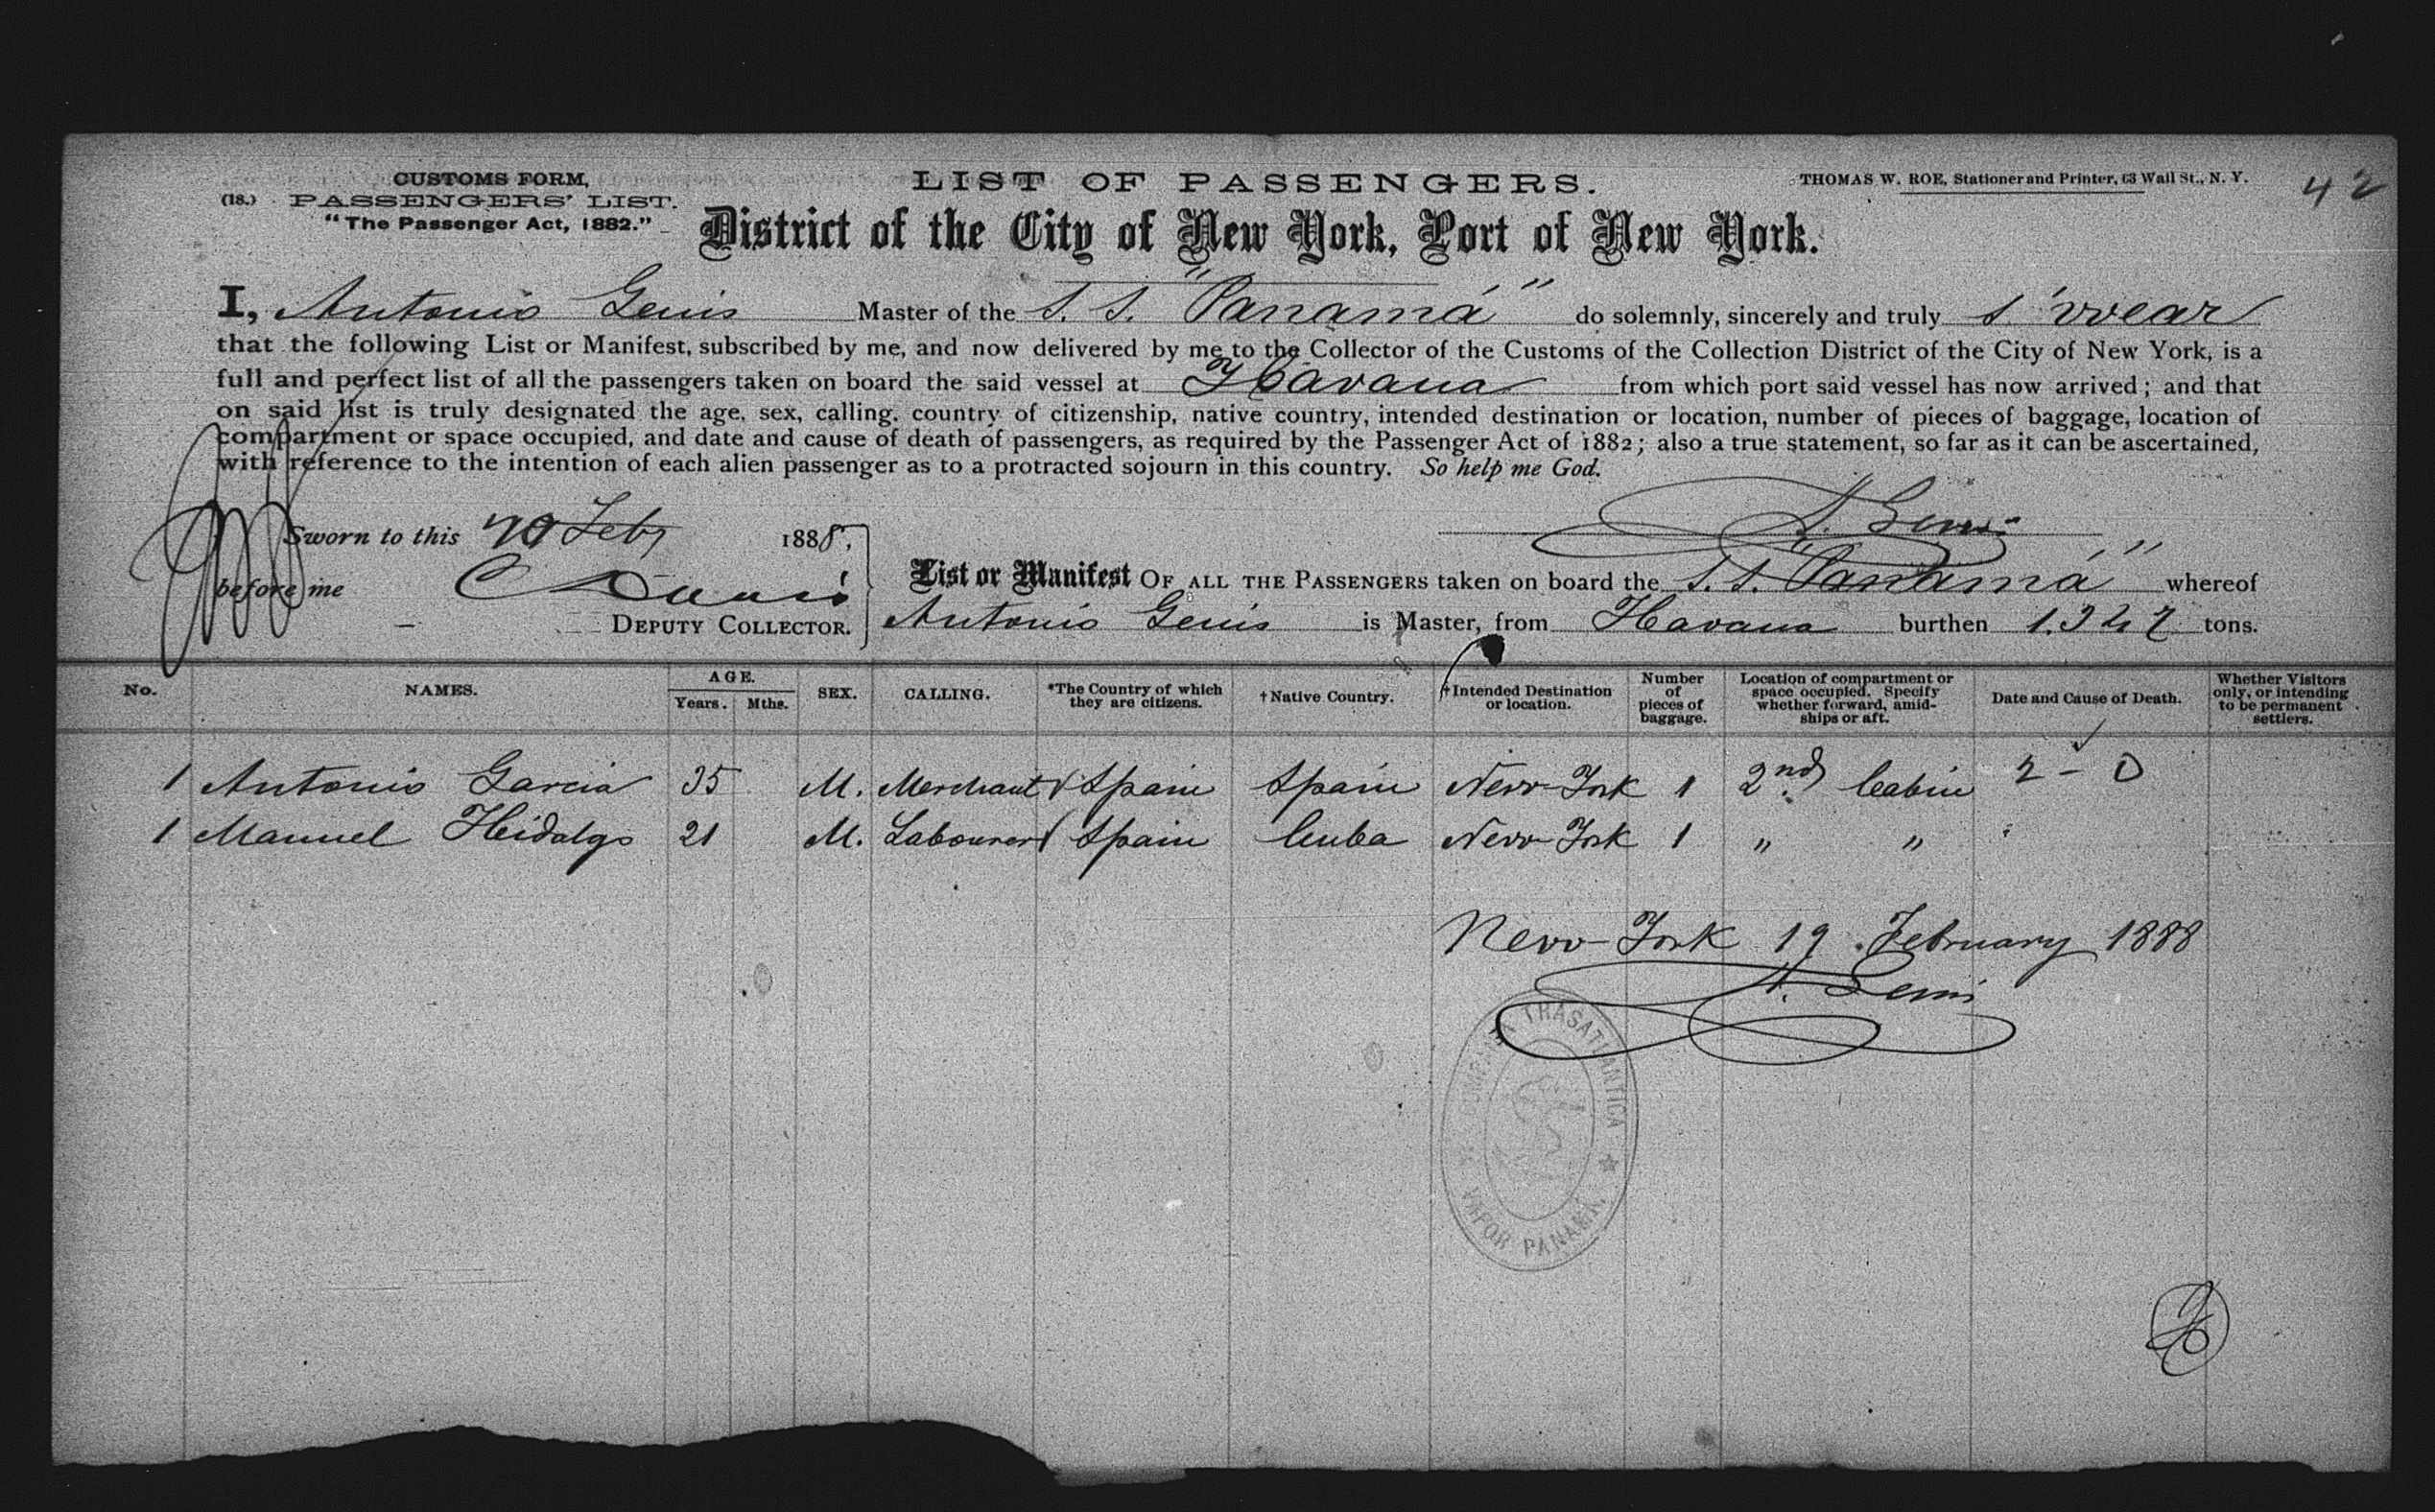 CUSTOMS FORM,
(18.) PASSENGERS' LIST.
"The Passenger Act, 1882."
LIST OF PASSENGERS.
THOMAS W. ROE, Stationer and Printer, 63 Wall St., N. Y.
42
District of the City of New York, Port of New York.
I, Antonio Genis Master of the S. S. "Panamá" do solemnly, sincerely and truly swear
that the following List or Manifest, subscribed by me, and now delivered by me to the Collector of the Customs of the Collection District of the City of New York, is a
full and perfect list of all the passengers taken on board the said vessel at Havana from which port said vessel has now arrived; and that
on said list is truly designated the age, sex, calling, country of citizenship, native country, intended destination or location, number of pieces of baggage, location of
compartment or space occupied, and date and cause of death of passengers, as required by the Passenger Act of 1882; also a true statement, so far as it can be ascertained,
with reference to the intention of each alien passenger as to a protracted sojourn in this country. So help me God.
Sworn to this 20 Feby 1888,
A. Genis
before me
DEPUTY COLLECTOR.
List or Manifest OF ALL THE PASSENGERS taken on board the S. S. "Panamá" whereof
Antonio Genis is Master, from Havana burthen tons.
No. NAMES. AGE. Years. Mths. SEX. CALLING. *The Country of which they are citizens. †Native Country. †Intended Destination or location. Number of pieces of baggage. Location of compartment or space occupied. Specify whether forward, amidships or aft. Date and Cause of Death. Whether Visitors only, or intending to be permanent settlers.
1 Antonio Garcia 35 M. Merchant Spain Spain New-York 1 2nd Cabin 2 - 0
1 Manuel Hidalgo 21 M. Labourer Spain Cuba New-York 1 " "
New-York 19 February 1888
A. Genis
COMPAÑIA TRASATLANTICA
VAPOR PANAMA.